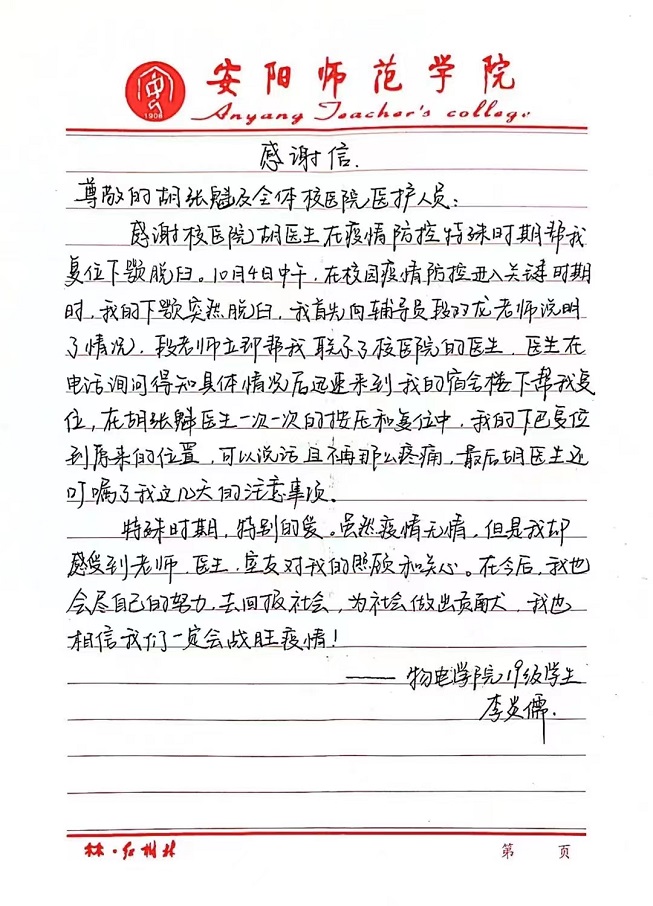 安阳师范学院
Anyang Teacher's college
1908
感谢信.
尊敬的胡张魁及全体校医院医护人员:
感谢校医院胡医生在疫情防控特殊时期帮我
复位下颚脱臼。10月4日中午,在校园疫情防控进入关键时期
时,我的下颚突然脱臼,我首先向辅导员段双龙老师说明
了情况,段老师立即帮我联系了校医院的医生,医生在
电话询问得知具体情况后迅速来到我的宿舍楼下帮我复
位,在胡张魁医生一次一次的按压和复位中,我的下巴复位
到原来的位置,可以说话且不再那么疼痛,最后胡医生还
叮嘱了我这几天的注意事项。
特殊时期,特别的爱。虽然疫情无情,但是我却
感受到老师,医生,室友对我的照顾和关心。在今后,我也
会尽自己的努力,去回报社会,为社会做出贡献,我也
相信我们一定会战胜疫情!
——物电学院19级学生
李炎儒.
林·红树林
第 页